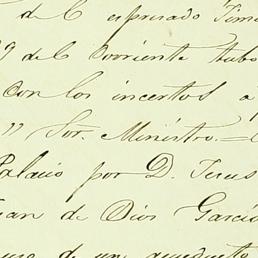 del espresado Tim
29 del corriente tubo
con los incertos a
" Sor. Ministro.=
Palacio por D. Jesus
Juan de Dios Garcia
de un